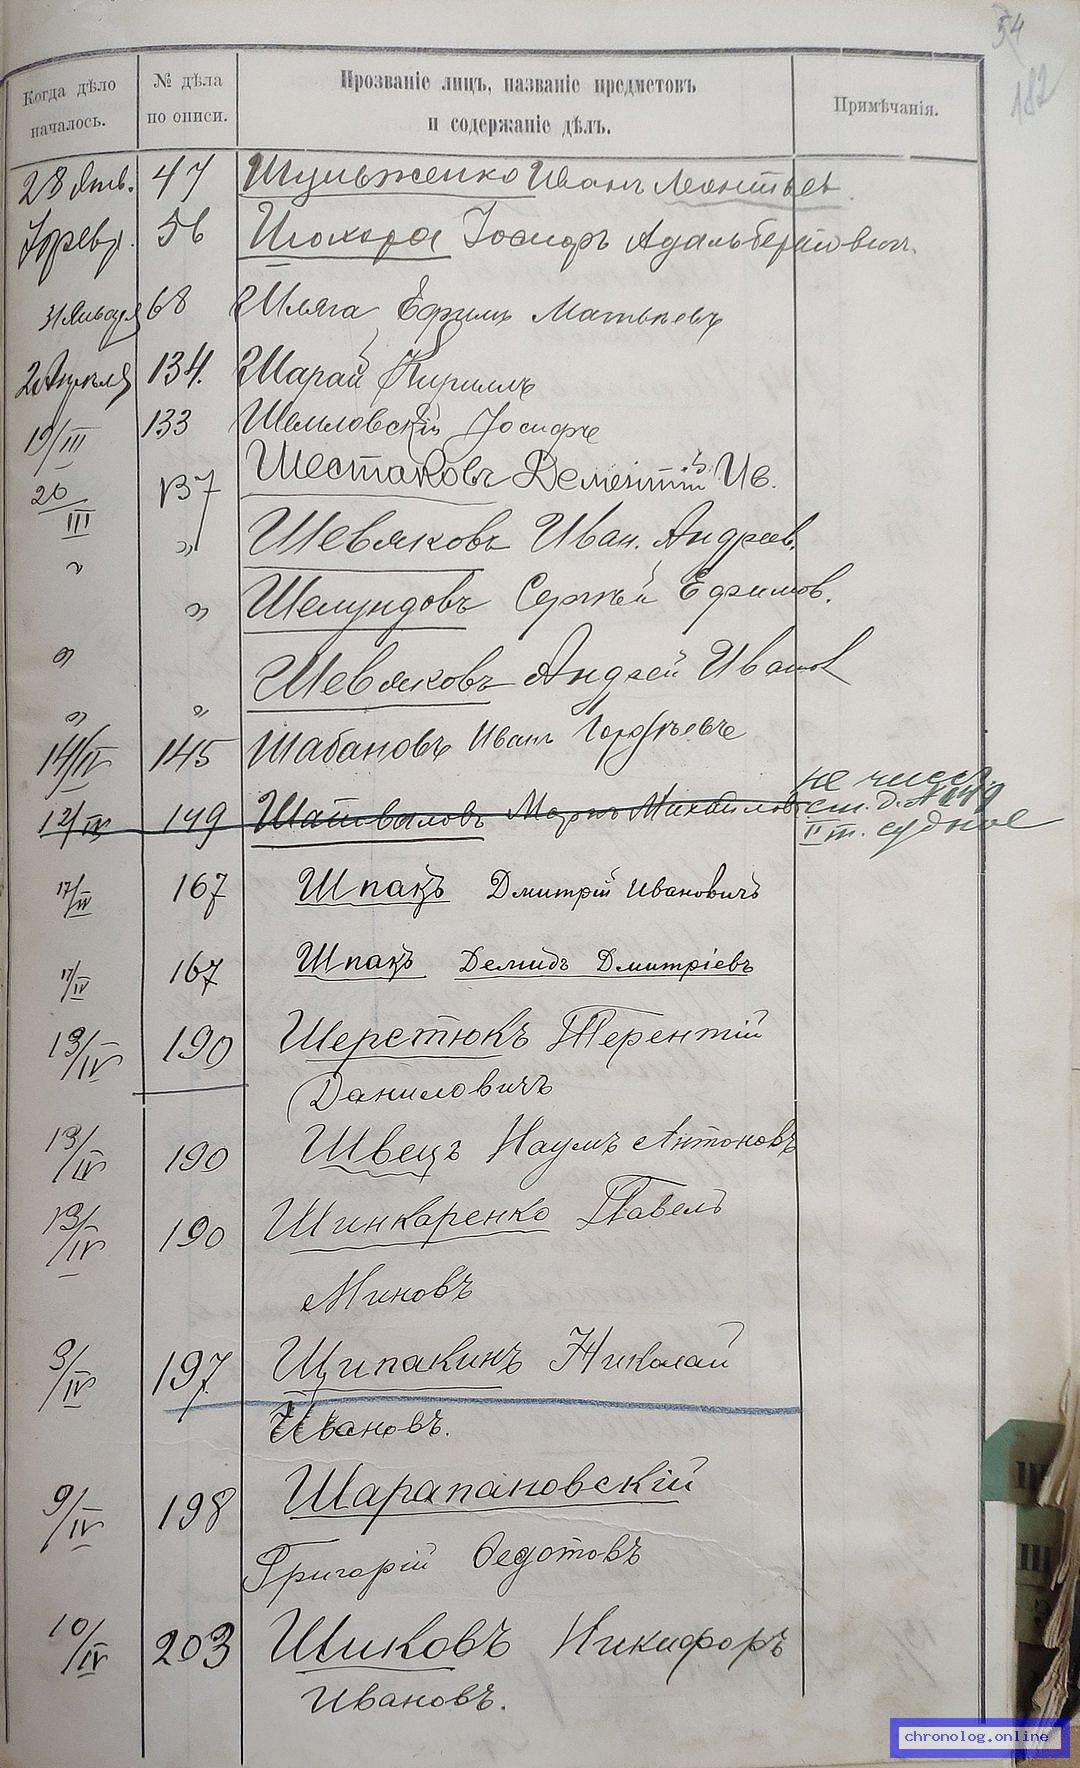 54
182
Когда дѣло началось.
№ дѣла по описи.
Прозваніе лицъ, названіе предметовъ и содержаніе дѣлъ.
Примѣчанія.
28 Янв. 47 Шульженко Иванъ Леонтьев
7 февр. 56 Шохора Іосифъ Адальбертович.
31 Января 68 Шляга Ефимъ Матвѣевъ
2 Апрѣля 134. Шарай Кириллъ
19/III 133 Іосифъ
20/III 137 Шестаковъ Дементій Ив.
" " Шевяковъ Иван. Андреев.
" " Шелундовъ Сергѣй Ефимов.
" " Шевяковъ Андрей Иванов
14/IV 145 Шабановъ Иванъ
12/IV 149 Маркъ Михайлов
не числ.
см. д. №449
II т. судное
17/IV 167 Шпакъ Дмитрій Ивановичъ
17/IV 167 Шпакъ Демидъ Дмитріевъ
13/IV 190 Шерстюкъ Терентій
Даниловичъ
13/IV 190 Швецъ Наумъ Антоновъ
13/IV 190 Шинкаренко Павелъ
Миновъ
3/IV 197 Щипакинъ Николай
Ивановъ.
9/IV 198 Шарапановскій
Григорій Федотовъ
10/IV 203 Шиковъ Никифоръ
Ивановъ.
chronolog.online